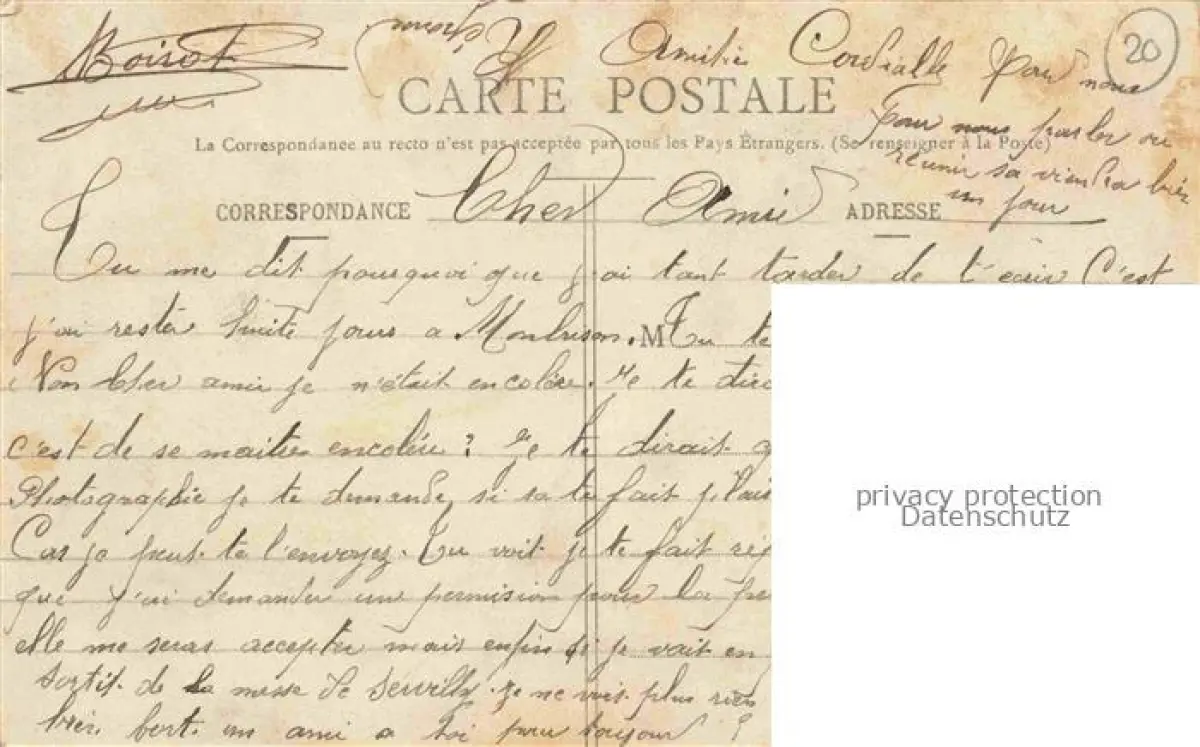 Boisot
Amitié Cordialle Pour nous
20
CARTE POSTALE
Pour nous parler ou
La Correspondance au recto n'est pas acceptée par tous les Pays Étrangers. (Se renseigner à la Poste)
réunir sa viendra bien
un jour
CORRESPONDANCE
Cher Amie
ADRESSE
Tu me dit pourquoi que j'ai tant tarder de t'écrir C'est
j'ai restér huite jours a Montbrison. M Tu te
Non Cher amie je n'était encolère. Je te dira
c'est de se maitre encolère ? Je te dirait
Photographie je te demande si sa te fait
Car je peut te l'envoyez. Tu voit je te fait
que j'ai demander une permision pour la
elle me seras accepter mais enfin si je vait en
sortit de la messe de Servilly. Je ne vois plus rien
bien fort un ami a toi pour toujour
privacy protection
Datenschutz